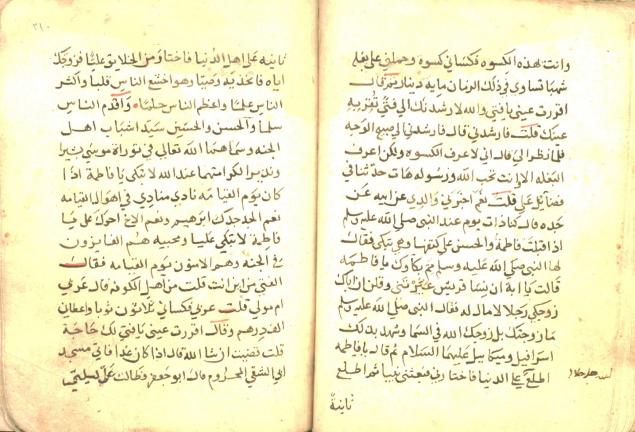 وانت لهذه الكسوه فكساني كسوه وحملني على بغله
شهبا تساوي في ذلك الزمان مايه دينار ثم قال
اقررت عيني يا فتى والله لارشدنك الى فتى تقر به
عينك قلت فارشدني قال فارشدني الى صبيح الوجه
فلما نظر الي قال اني لاعرف الكسوه ولكن اعرف
البغله انت تحب الله ورسوله هات حدثنا في
فضايل علي قلت نعم اخبرني والدي عن ابيه عن
جده قال كنا ذات يوم عند النبي صلى الله عليه وسلم
اذ اقبلت فاطمة والحسن على كتفها وهي تبكي فقال
لها النبي صلى الله عليه وسلم مم بكاوك يا فاطمه
قالت يا ابة ان نسا قريش عيرتني وقلن ان اباك
زوجك رجلا لا مال له فقال النبي صلى الله عليه وسلم
ما زوجتك بل زوجك الله في السما وشهد بذلك
اسرافيل وميكاييل عليهما السلام ثم قال يا فاطمه
اطلع على الدنيا فاختارني فبعثني نبيا ثم اطلع
ثانية
ثانيه على اهل الدنيا فاختار من الخلايق عليا فزوجك
اياه فاتخذيه وصيا وهو اشجع الناس قلبا واكثر
الناس علما واعظم الناس حلما واقدم الناس
سلما والحسن والحسين سيدا شباب اهل
الجنه وسماهما الله تعالى في توراة موسى شبرا
وشبيرا لكرامتهما عند الله لا تبكي يا فاطمة اذا
كان يوم القيامه نادى منادي في اهوال القيامه
نعم الجد جدك ابرهيم ونعم الاخ اخوك علي يا
فاطمة لا تبكي عليا ومحبيه هم الفايزون
في الجنه وهم الامنون يوم القيامه فقال
الفتى من اين انت قلت من اهل الكوفه قال عربي
ام مولى قلت عربي فكساني ثلاثون ثوبا واعطاني
الف درهم وقال اقررت عيني يا فتى لك حاجة
قلت تقضيت ان شا الله قال اذا كان غدا فاتي مسجد
ابي الشقي المحروم قال ابو جعفر فطالت علي ليلتي